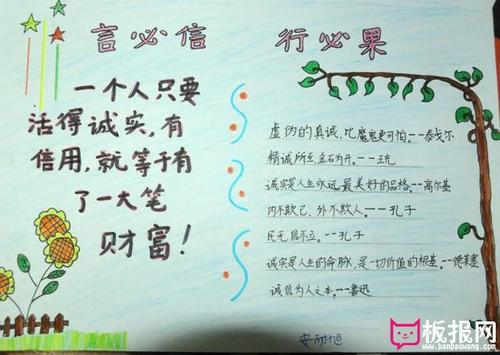 言必信 行必果
一个人只要
活得诚实,有
信用,就等于有
了一大笔
财富!
虚伪的真诚,比魔鬼更可怕。--泰戈尔
精诚所至,金石为开。--王充
诚实是人生永远最美好的品格。--高尔基
内不欺己,外不欺人。--孔子
民无信不立。--孔子
诚实是人生的命脉,是一切价值的根基。--德莱塞
诚信为人之本。--鲁迅
板报网
www.banbaowang.com